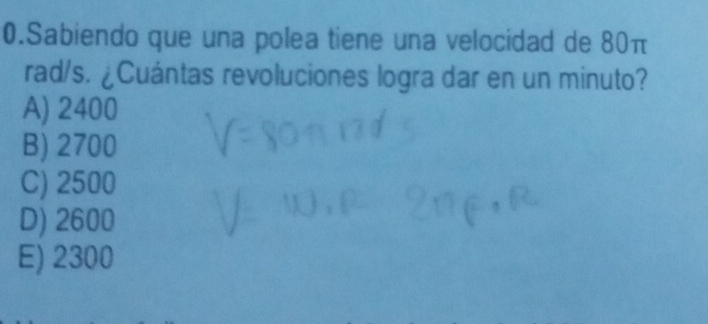 0.Sabiendo que una polea tiene una velocidad de 80π
rad/s. ¿Cuántas revoluciones logra dar en un minuto?
A) 2400
B) 2700
V=80π rad s
C) 2500
D) 2600
V= W.R 2πf.R
E) 2300